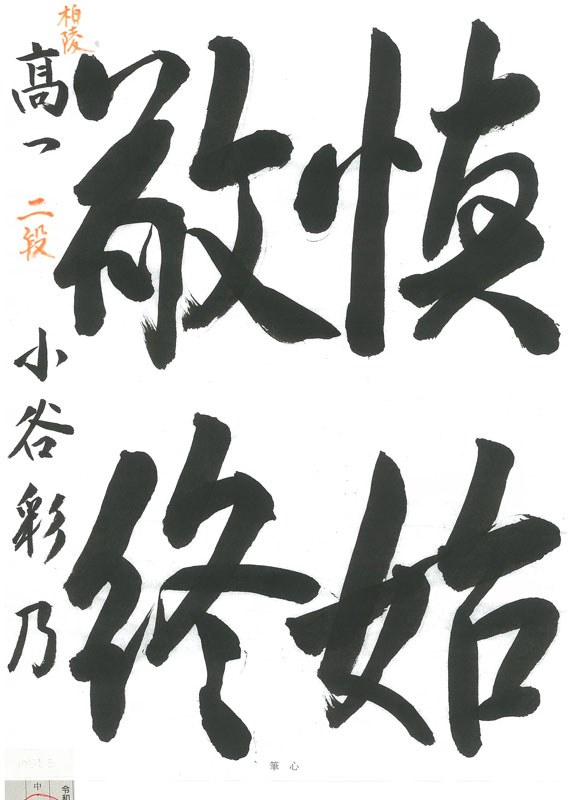 慎始
敬終
柏陵
高一 二段 小谷彩乃
筆心
中
令和